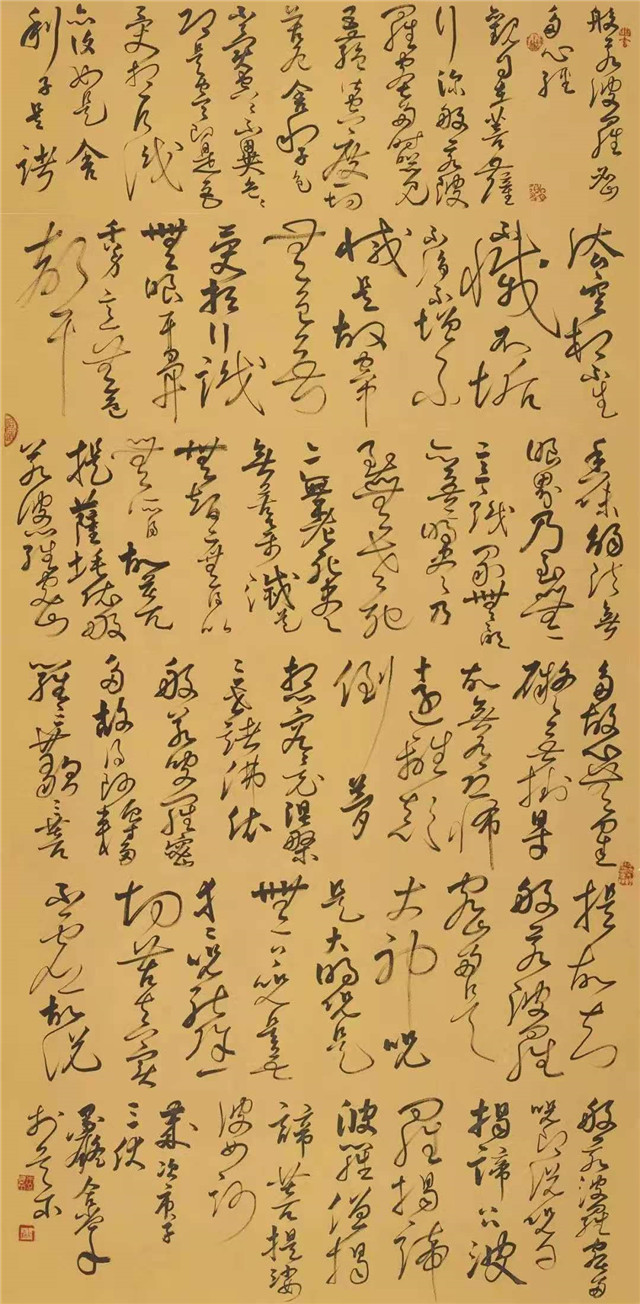 般若波羅蜜
多心經
觀自在菩薩
行深般若波
羅蜜多時照見
五蘊皆空度一切
苦厄舍利子色
不異空空不異色色
即是空空即是色
受想行識
亦復如是舍
利子是諸
法空相不生
不滅不垢
不淨不增不
減是故空中
無色無
受想行識
無眼耳鼻
舌身意無色
聲
香味觸法無
眼界乃至無
意識界無無明
亦無無明盡乃
至無老死
亦無老死盡
無苦集滅道
無智亦無得以
無所得故菩
提薩埵依般
若波羅蜜
多故心無罣
礙無罣礙
故無有恐怖
遠離顛
倒夢
想究竟涅槃
三世諸佛依
般若波羅蜜
多故得阿耨多
羅三藐三菩
提故知
般若波羅
蜜多是
大神咒
是大明咒是
無上咒是無
等等咒能除一
切苦真實
不虛故說
般若波羅蜜多
咒即說咒曰
揭諦揭諦波
羅揭諦
波羅僧揭
諦菩提娑
婆訶
歲次庚子
三伏